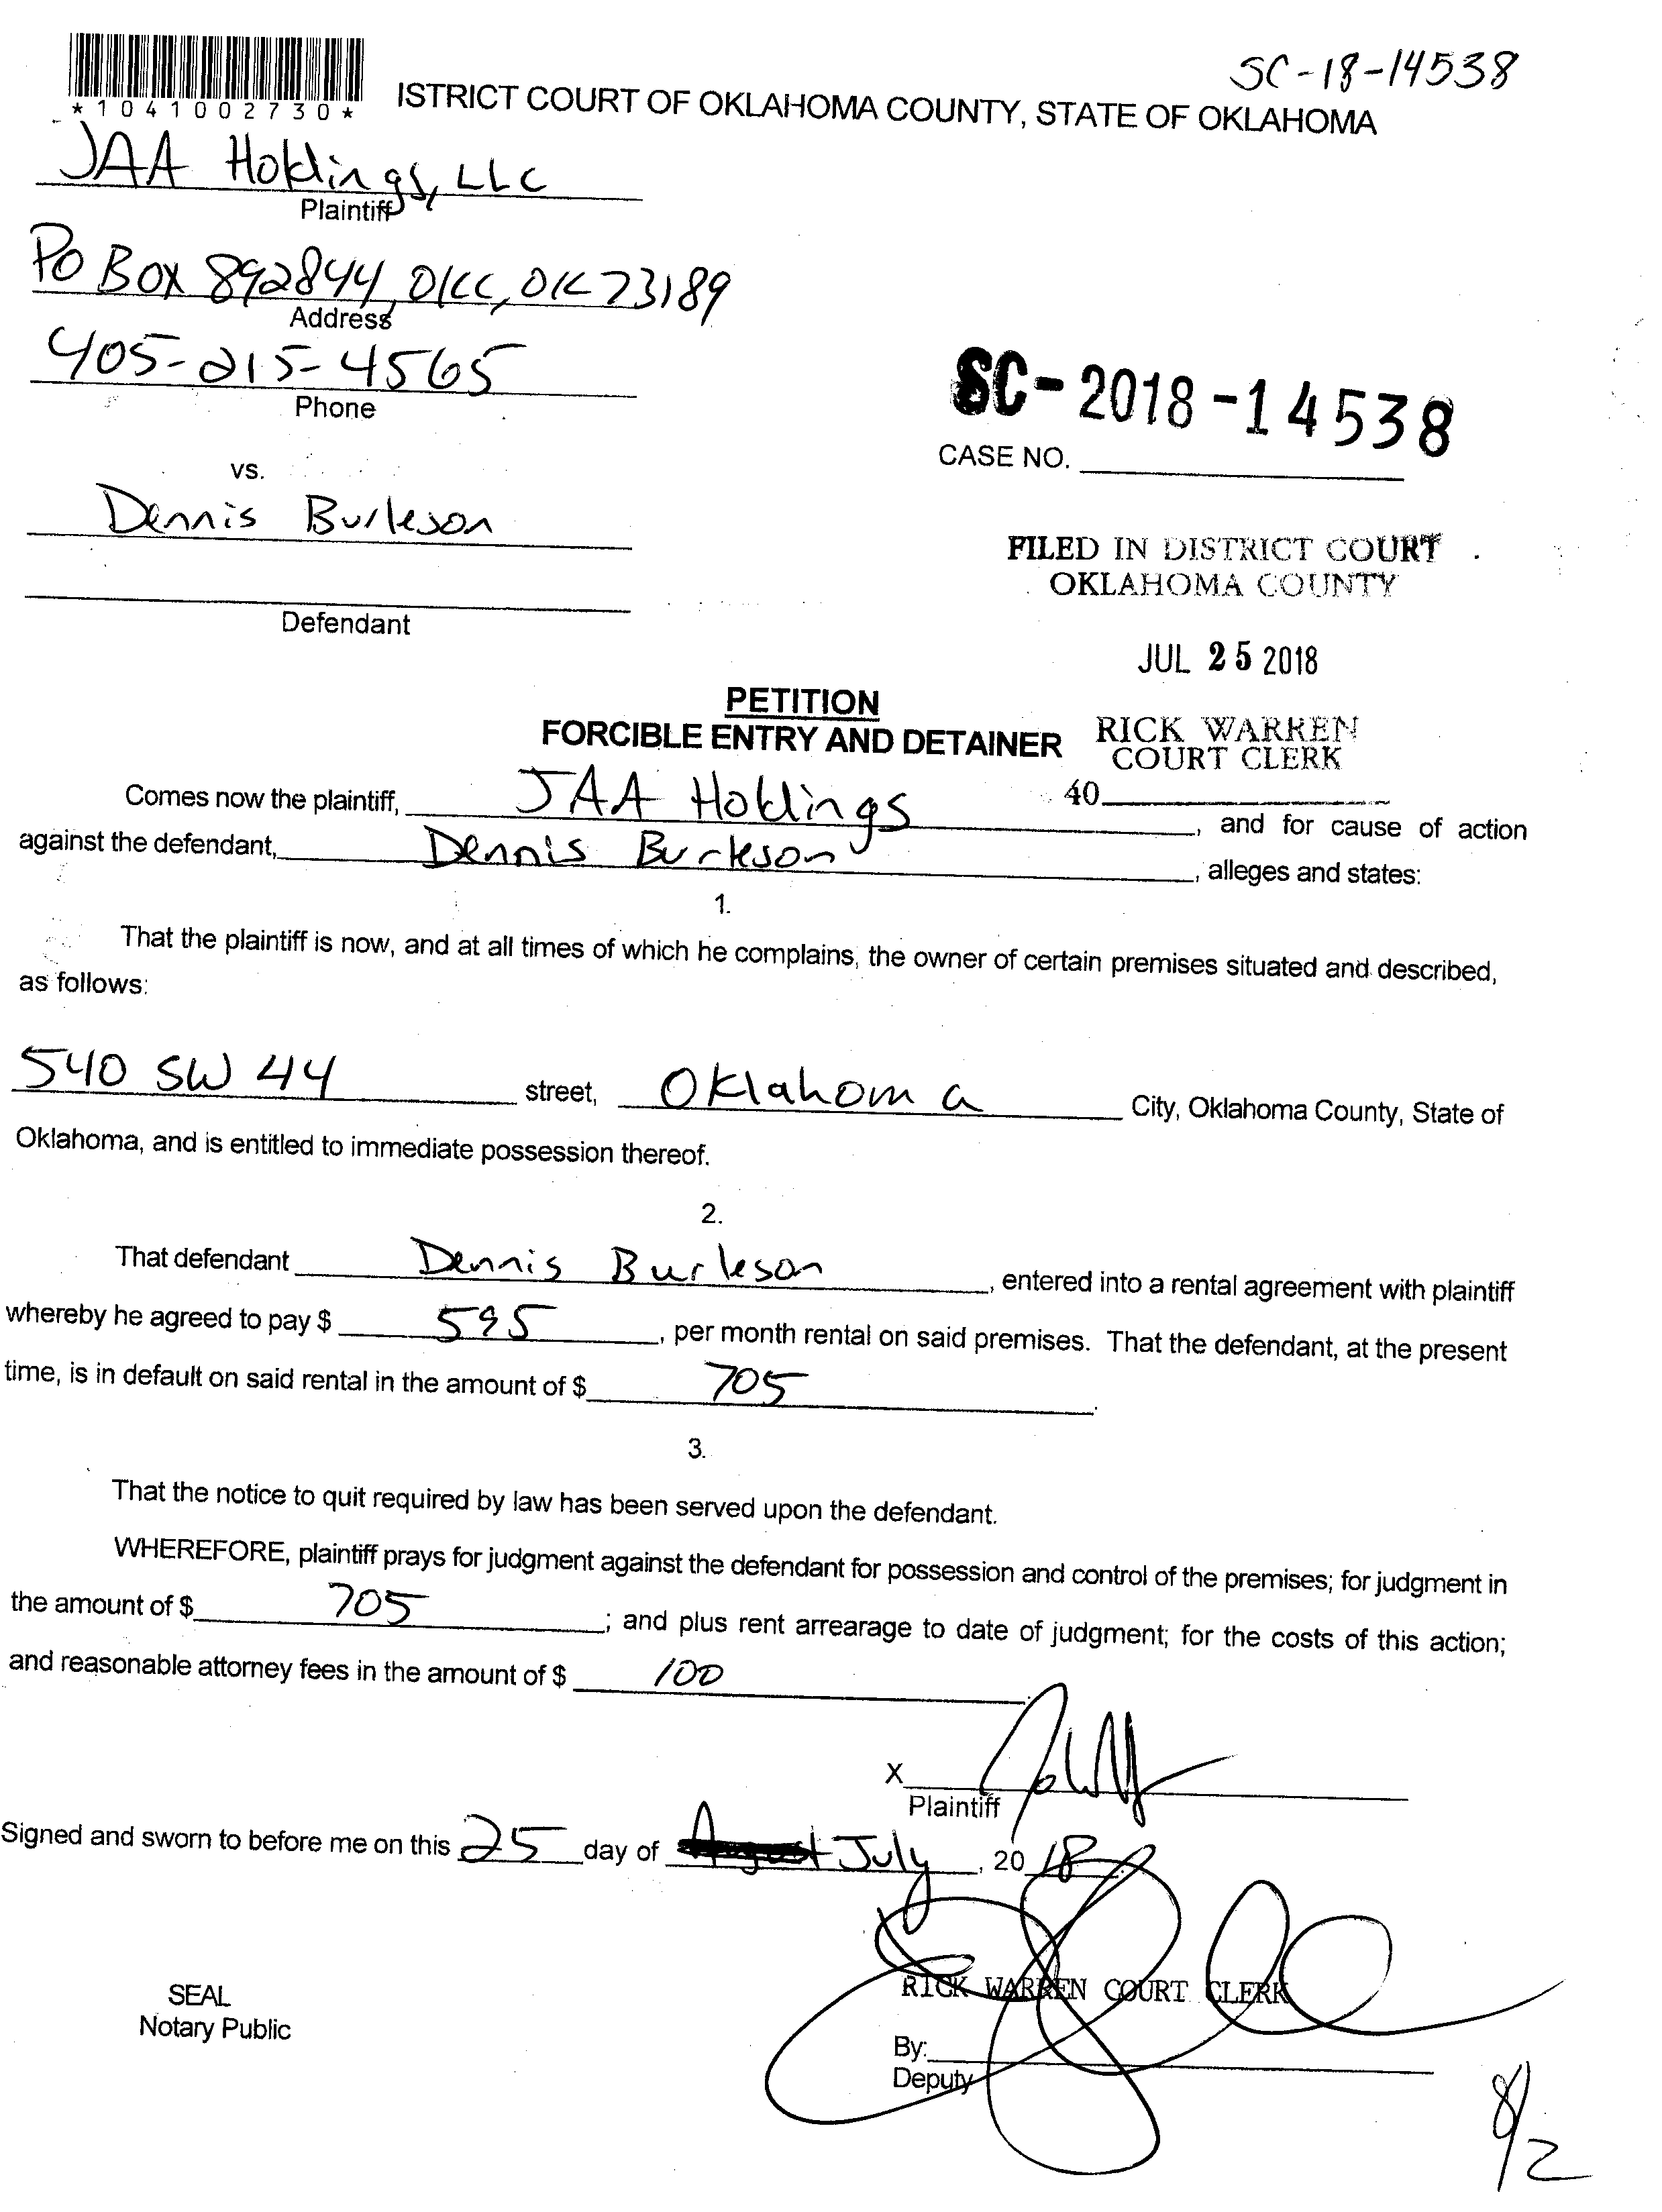 SC-18-14538
*1041002730*
ISTRICT COURT OF OKLAHOMA COUNTY, STATE OF OKLAHOMA
JAA Holdings, LLC
Plaintiff
PO Box 892844, OKC, OK 73189
Address
405-215-4565
Phone
SC-2018-14538
CASE NO.
vs.
Dennis Burleson
FILED IN DISTRICT COURT
OKLAHOMA COUNTY
Defendant
JUL 25 2018
PETITION
FORCIBLE ENTRY AND DETAINER
RICK WARREN
COURT CLERK
40
Comes now the plaintiff, JAA Holdings, and for cause of action
against the defendant, Dennis Burleson, alleges and states:
1.
That the plaintiff is now, and at all times of which he complains, the owner of certain premises situated and described,
as follows:
540 SW 44 street, Oklahoma City, Oklahoma County, State of
Oklahoma, and is entitled to immediate possession thereof.
2.
That defendant Dennis Burleson, entered into a rental agreement with plaintiff
whereby he agreed to pay $ 595, per month rental on said premises. That the defendant, at the present
time, is in default on said rental in the amount of $ 705.
3.
That the notice to quit required by law has been served upon the defendant.
WHEREFORE, plaintiff prays for judgment against the defendant for possession and control of the premises; for judgment in
the amount of $ 705; and plus rent arrearage to date of judgment; for the costs of this action;
and reasonable attorney fees in the amount of $ 100.
X
Plaintiff
Signed and sworn to before me on this 25 day of August July, 2018.
RICK WARREN COURT CLERK
SEAL
Notary Public
By:
Deputy
8/2